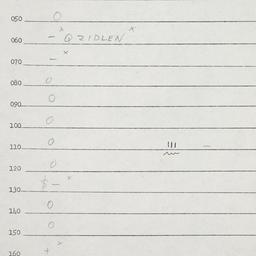 050 O
060 - x QZIDLEN x
070 - x
080 O
090 O
100 O
110 O ||| -
120 O
130 - x
140 O
150 O
160 + x